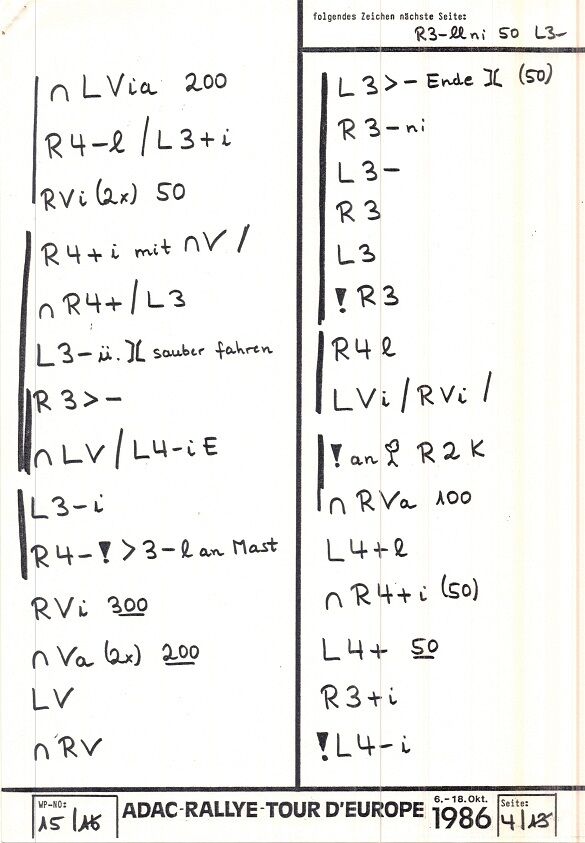 folgendes Zeichen nächste Seite:
R3-llni 50 L3-
∩ LVia 200
R4-l / L3+i
RVi (2x) 50
R4+i mit ∩V /
∩ R4+ / L3
L3-ü. ][ sauber fahren
R3>-
∩ LV / L4-iE
L3-i
R4-! >3-l an Mast
RVi 300
∩ Va (2x) 200
LV
∩ RV
L3>- Ende ][ (50)
R3-ni
L3-
R3
L3
! R3
R4l
LVi / RVi /
! an R2K
∩ RVa 100
L4+l
∩ R4+i (50)
L4+ 50
R3+i
!L4-i
WP-NO:
15/16
ADAC-RALLYE-TOUR D'EUROPE
6.-18.Okt.
1986
Seite:
4/13